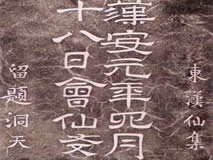 東漢仙集
漢安元年四月
十八日會仙友
留題洞天